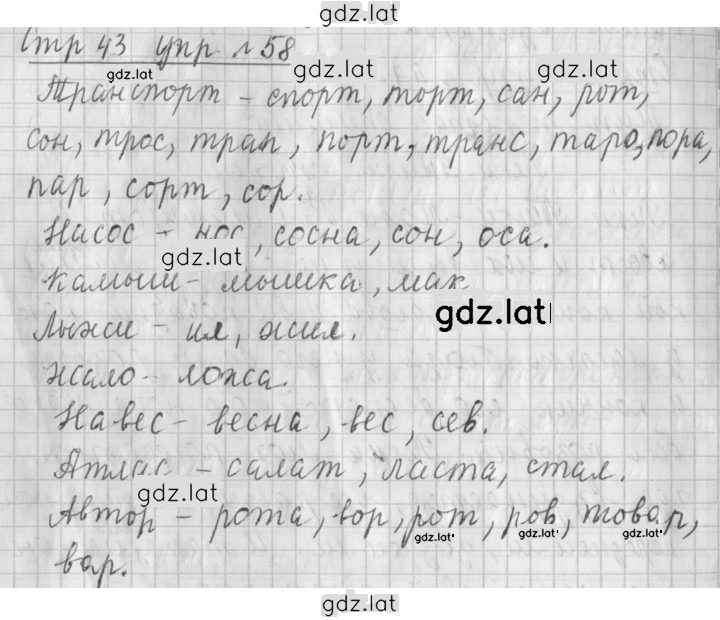 gdz.lat
Стр 43 упр. № 58
gdz.lat
gdz.lat
Транспорт – спорт, торт, сан, рот,
сон, трос, трап, порт, транс, таро, пора,
пар, сорт, сор.
Насос – нос, сосна, сон, оса.
gdz.lat
Камыш – мышка, мак
gdz.lat
Лыжи – ил, жил.
Жало – ложа.
Навес – весна, вес, сев.
Атлас – салат, ласта, стал.
gdz.lat
Автор – рота, вор, рот, ров, товар,
gdz.lat
gdz.lat
gdz.lat
вар.
gdz.lat